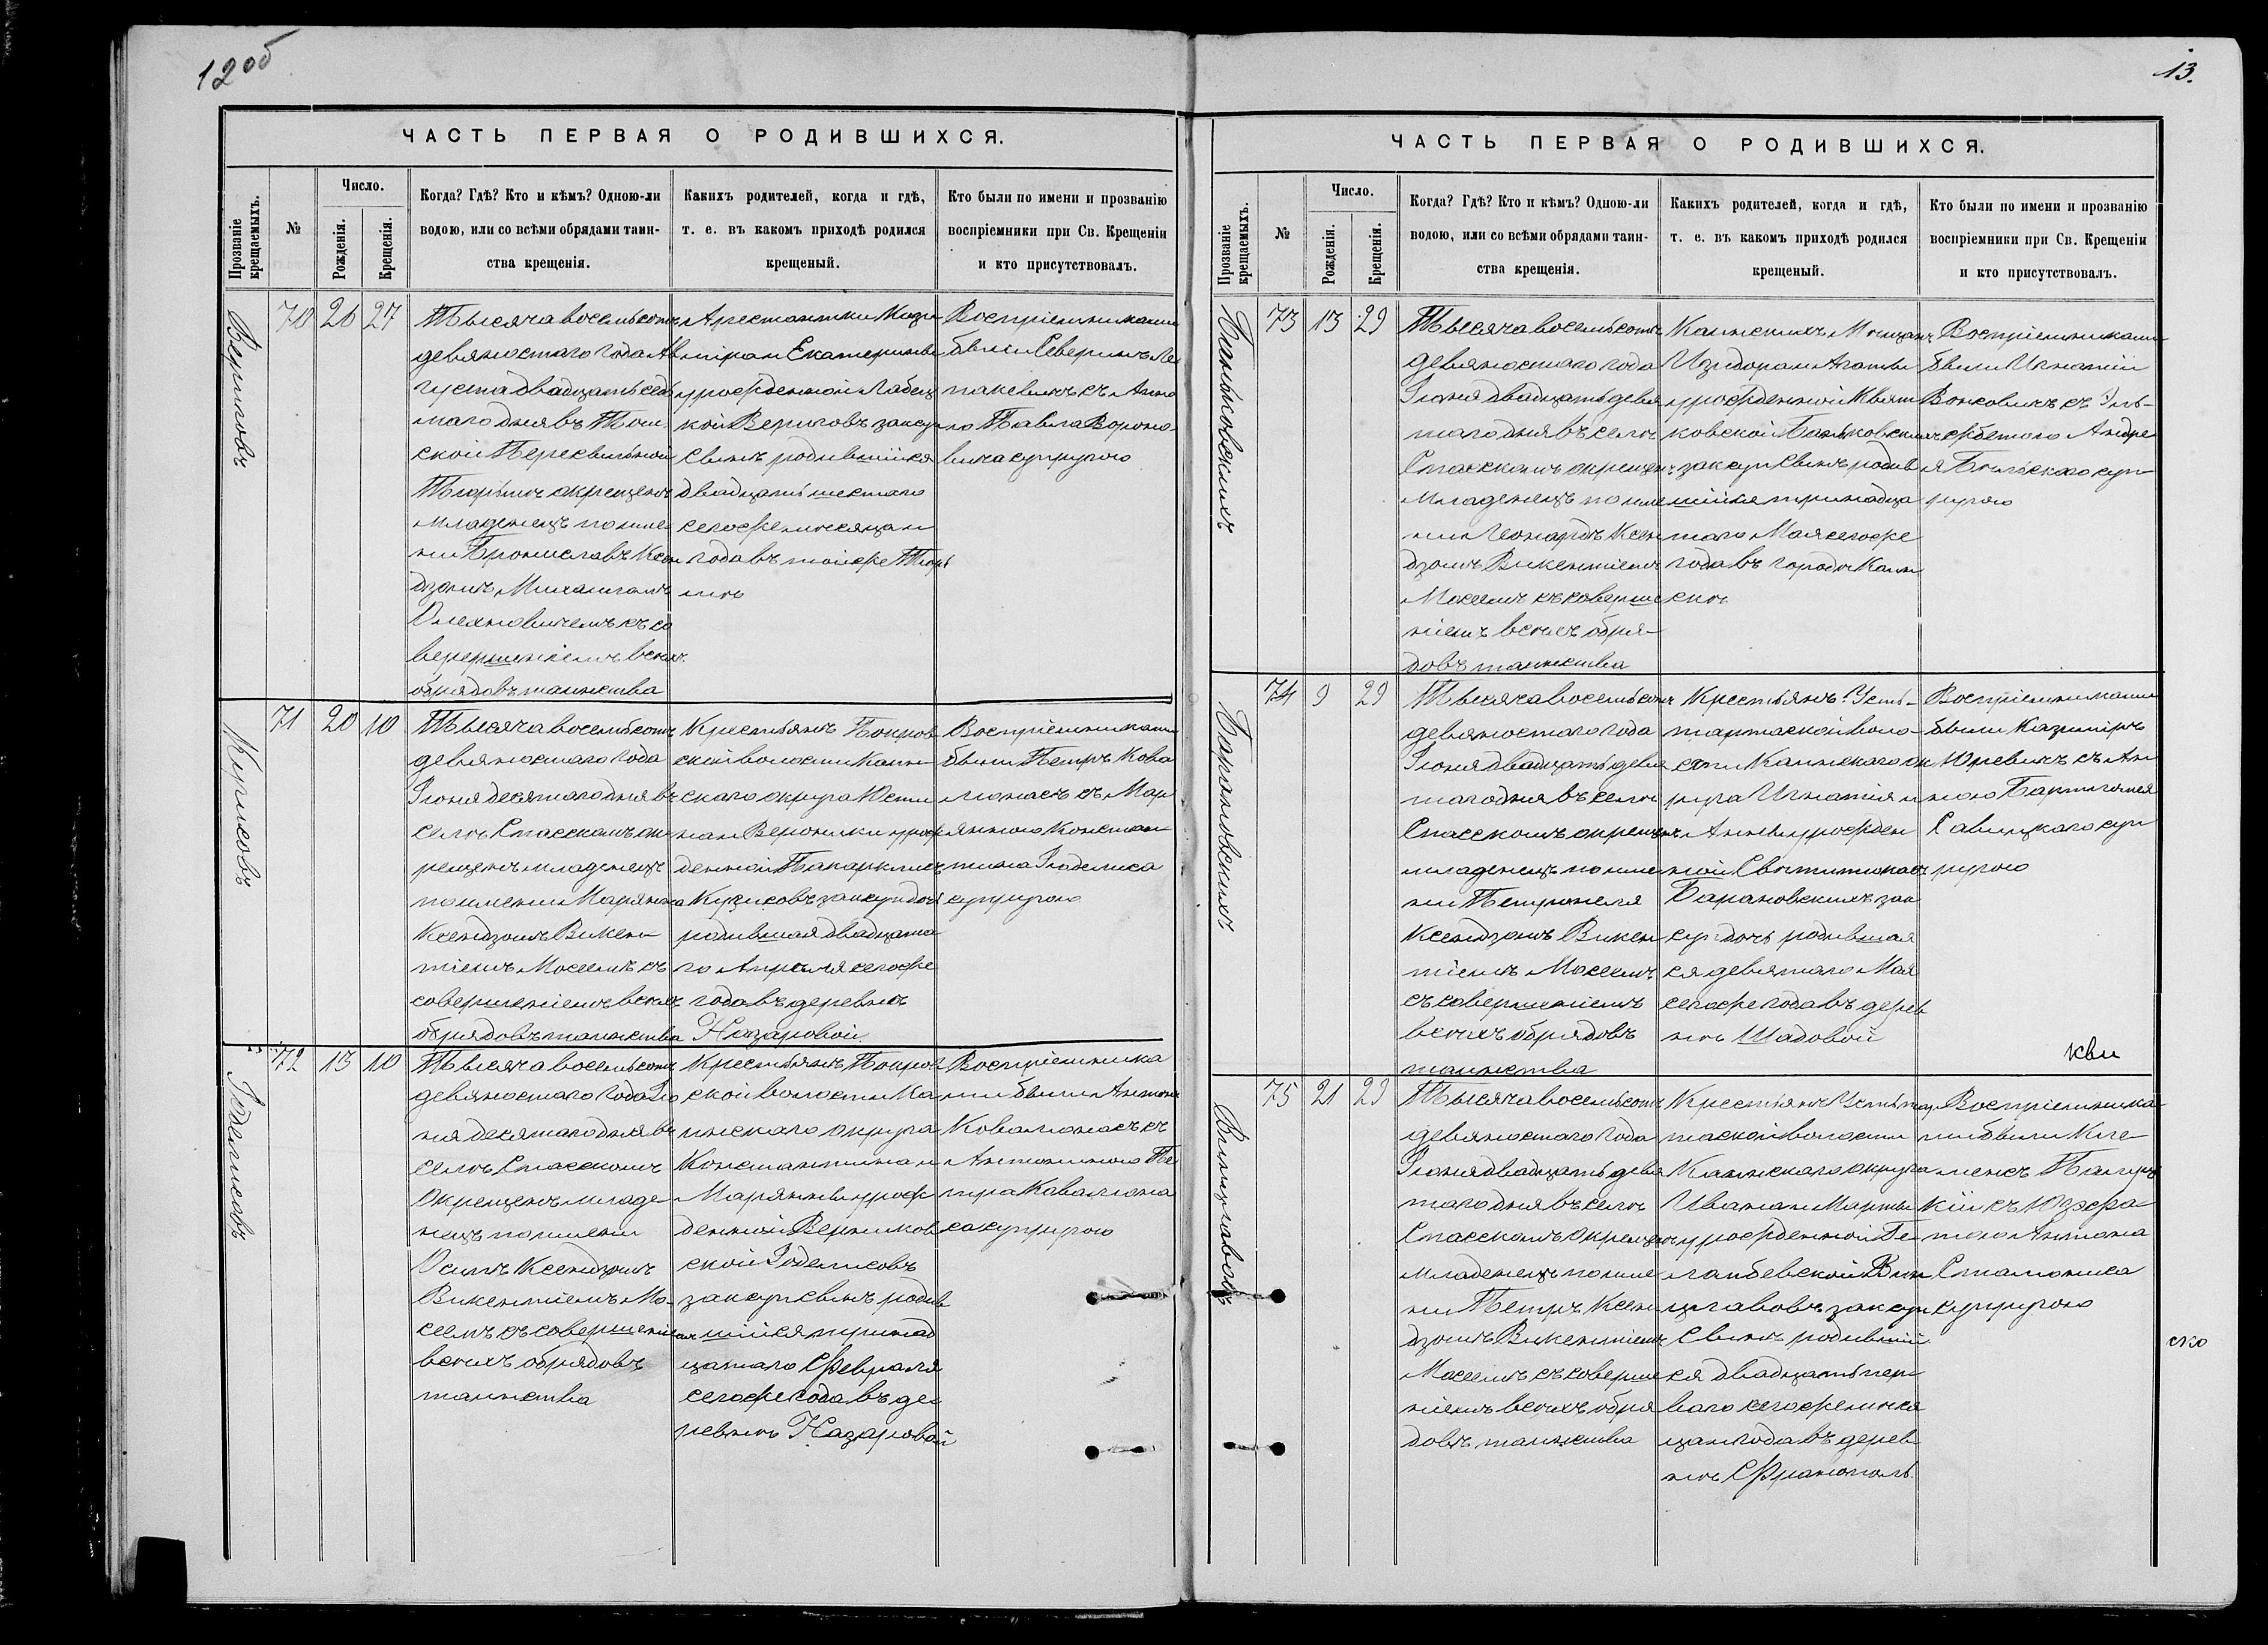 12 об
ЧАСТЬ ПЕРВАЯ О РОДИВШИХСЯ.
Прозваніе крещаемыхъ.
№
Число.
Рожденія.
Крещенія.
Когда? Гдѣ? Кто и кѣмъ? Одною-ли
водою, или со всѣми обрядами таин-
ства крещенія.
Какихъ родителей, когда и гдѣ,
т. е. въ какомъ приходѣ родился
крещеный.
Кто были по имени и прозванію
воспріемники при Св. Крещеніи
и кто присутствовалъ.
70 26 27
Тысяча восемьсотъ
девяностаго года Ав
густа двадцать седь
маго дня въ Том
ской Пересыльной
Тюрьмѣ окрещенъ
младенецъ по име
ни Брониславъ Ксен
дзомъ Михаиломъ
Олехновичемъ съ со
верершеніемъ всѣхъ
обрядовъ таинства
Арестантки
Екатерины
урожденной
закон
сынъ родившійся
двадцать шестаго
сегоже мѣсяца и
года въ тойже Тюрь
мѣ
Воспріемниками
были Северинъ
съ Анно
ю Павла Вороно
вича супругою
71 20 10
Тысяча восемьсотъ
девяностаго года
Іюня десятаго дня въ
селѣ Спасскомъ ок
рещенъ младенецъ
по имени Маріанна
Ксендзомъ Викен
тіемъ Мосеемъ съ
совершеніемъ всѣхъ
обрядовъ таинства
Крестьянъ Покров
ской волости Каин
скаго округа Юсти
на и Вероники урож
денной
зак суп дочь
родившая двадцата
го Апрѣля сегоже
года въ деревнѣ
Назаровой
Воспріемниками
были Петръ Кова
люнасъ съ Мар
янною Констан
тина
супругою
72 13 10
Тысяча восемьсотъ
девяностаго года Ію
ня десятаго дня въ
селѣ Спасскомъ
Окрещенъ младе
нецъ по имени
Осипъ Ксендзомъ
Викентіемъ Мо-
сеемъ съ совершеніемъ
всѣхъ обрядовъ
таинства
Крестьянъ Покров
ской волости Ка
инскаго округа
Константина и
Маріанны урож
денной Верников
ской
зак суп сынъ родив
шійся тринад
цатаго Февраля
сегоже года въ де
ревнѣ Назаровой
Воспріемника
ми были Антонъ
Ковалюнасъ съ
Антониною Пе
тра Ковалюна
са супругою
13.
ЧАСТЬ ПЕРВАЯ О РОДИВШИХСЯ.
Прозваніе крещаемыхъ.
№
Число.
Рожденія.
Крещенія.
Когда? Гдѣ? Кто и кѣмъ? Одною-ли
водою, или со всѣми обрядами таин-
ства крещенія.
Какихъ родителей, когда и гдѣ,
т. е. въ какомъ приходѣ родился
крещеный.
Кто были по имени и прозванію
воспріемники при Св. Крещеніи
и кто присутствовалъ.
Баньковскихъ
73 13 29
Тысяча восемьсотъ
девяностаго года
Іюня двадцать девя
таго дня въ селѣ
Спасскомъ окрещенъ
младенецъ по име
ни Леонардъ Ксен
дзомъ Викентіемъ
Мосеемъ съ соверше
ніемъ всѣхъ обря-
довъ таинства
Каинскихъ Мѣщанъ
Изидора и Агаты
урожденной Квят
ковской Баньковских
зак суп сынъ родив
шійся тринадца
таго Мая сегоже
года въ городѣ Каин
скѣ
Воспріемниками
были Игнатій
Вонковичъ съ Эль-
жбетою Андре
я Бѣльскаго суп
ругою
Барановскихъ
74 9 29
Тысяча восемьсотъ
девяностаго года
Іюня двадцать девя
таго дня въ селѣ
Спасскомъ окрещенъ
младенецъ по име
ни Петронеля
Ксендзомъ Викен
тіемъ Мосеемъ
съ совершеніемъ
всѣхъ обрядовъ
таинства
Крестьянъ Усть-
тартасской воло-
сти Каинскаго ок
руга Игнатія и
Анны урожден
ной
Барановскихъ зак
суп дочь родившая
ся девятаго Мая
сегоже года въ дерев
нѣ Шадовой
Воспріемниками
были Казимиръ
Юревичъ съ Ан
ною Бартоломея
Савицкаго суп
ругою
кви
75 21 29
Тысяча восемьсотъ
девяностаго года
Іюня двадцать девя
таго дня въ селѣ
Спасскомъ окрещенъ
младенецъ по име
ни Петръ Ксен
дзомъ Викентіемъ
Мосеемъ съ соверше
ніемъ всѣхъ обря
довъ таинства
Крестьянъ Устьтар
таской волости
Каинскаго округа
Ивана и Марты
урожденной
зак суп
Сынъ родивший
ся двадцать пер
ваго сегоже мѣся
ца и года въ дерев
нѣ Франополь
Воспріемника
ми были Кле
менсъ
съ Юзефа
тою Антона
супругою
ско